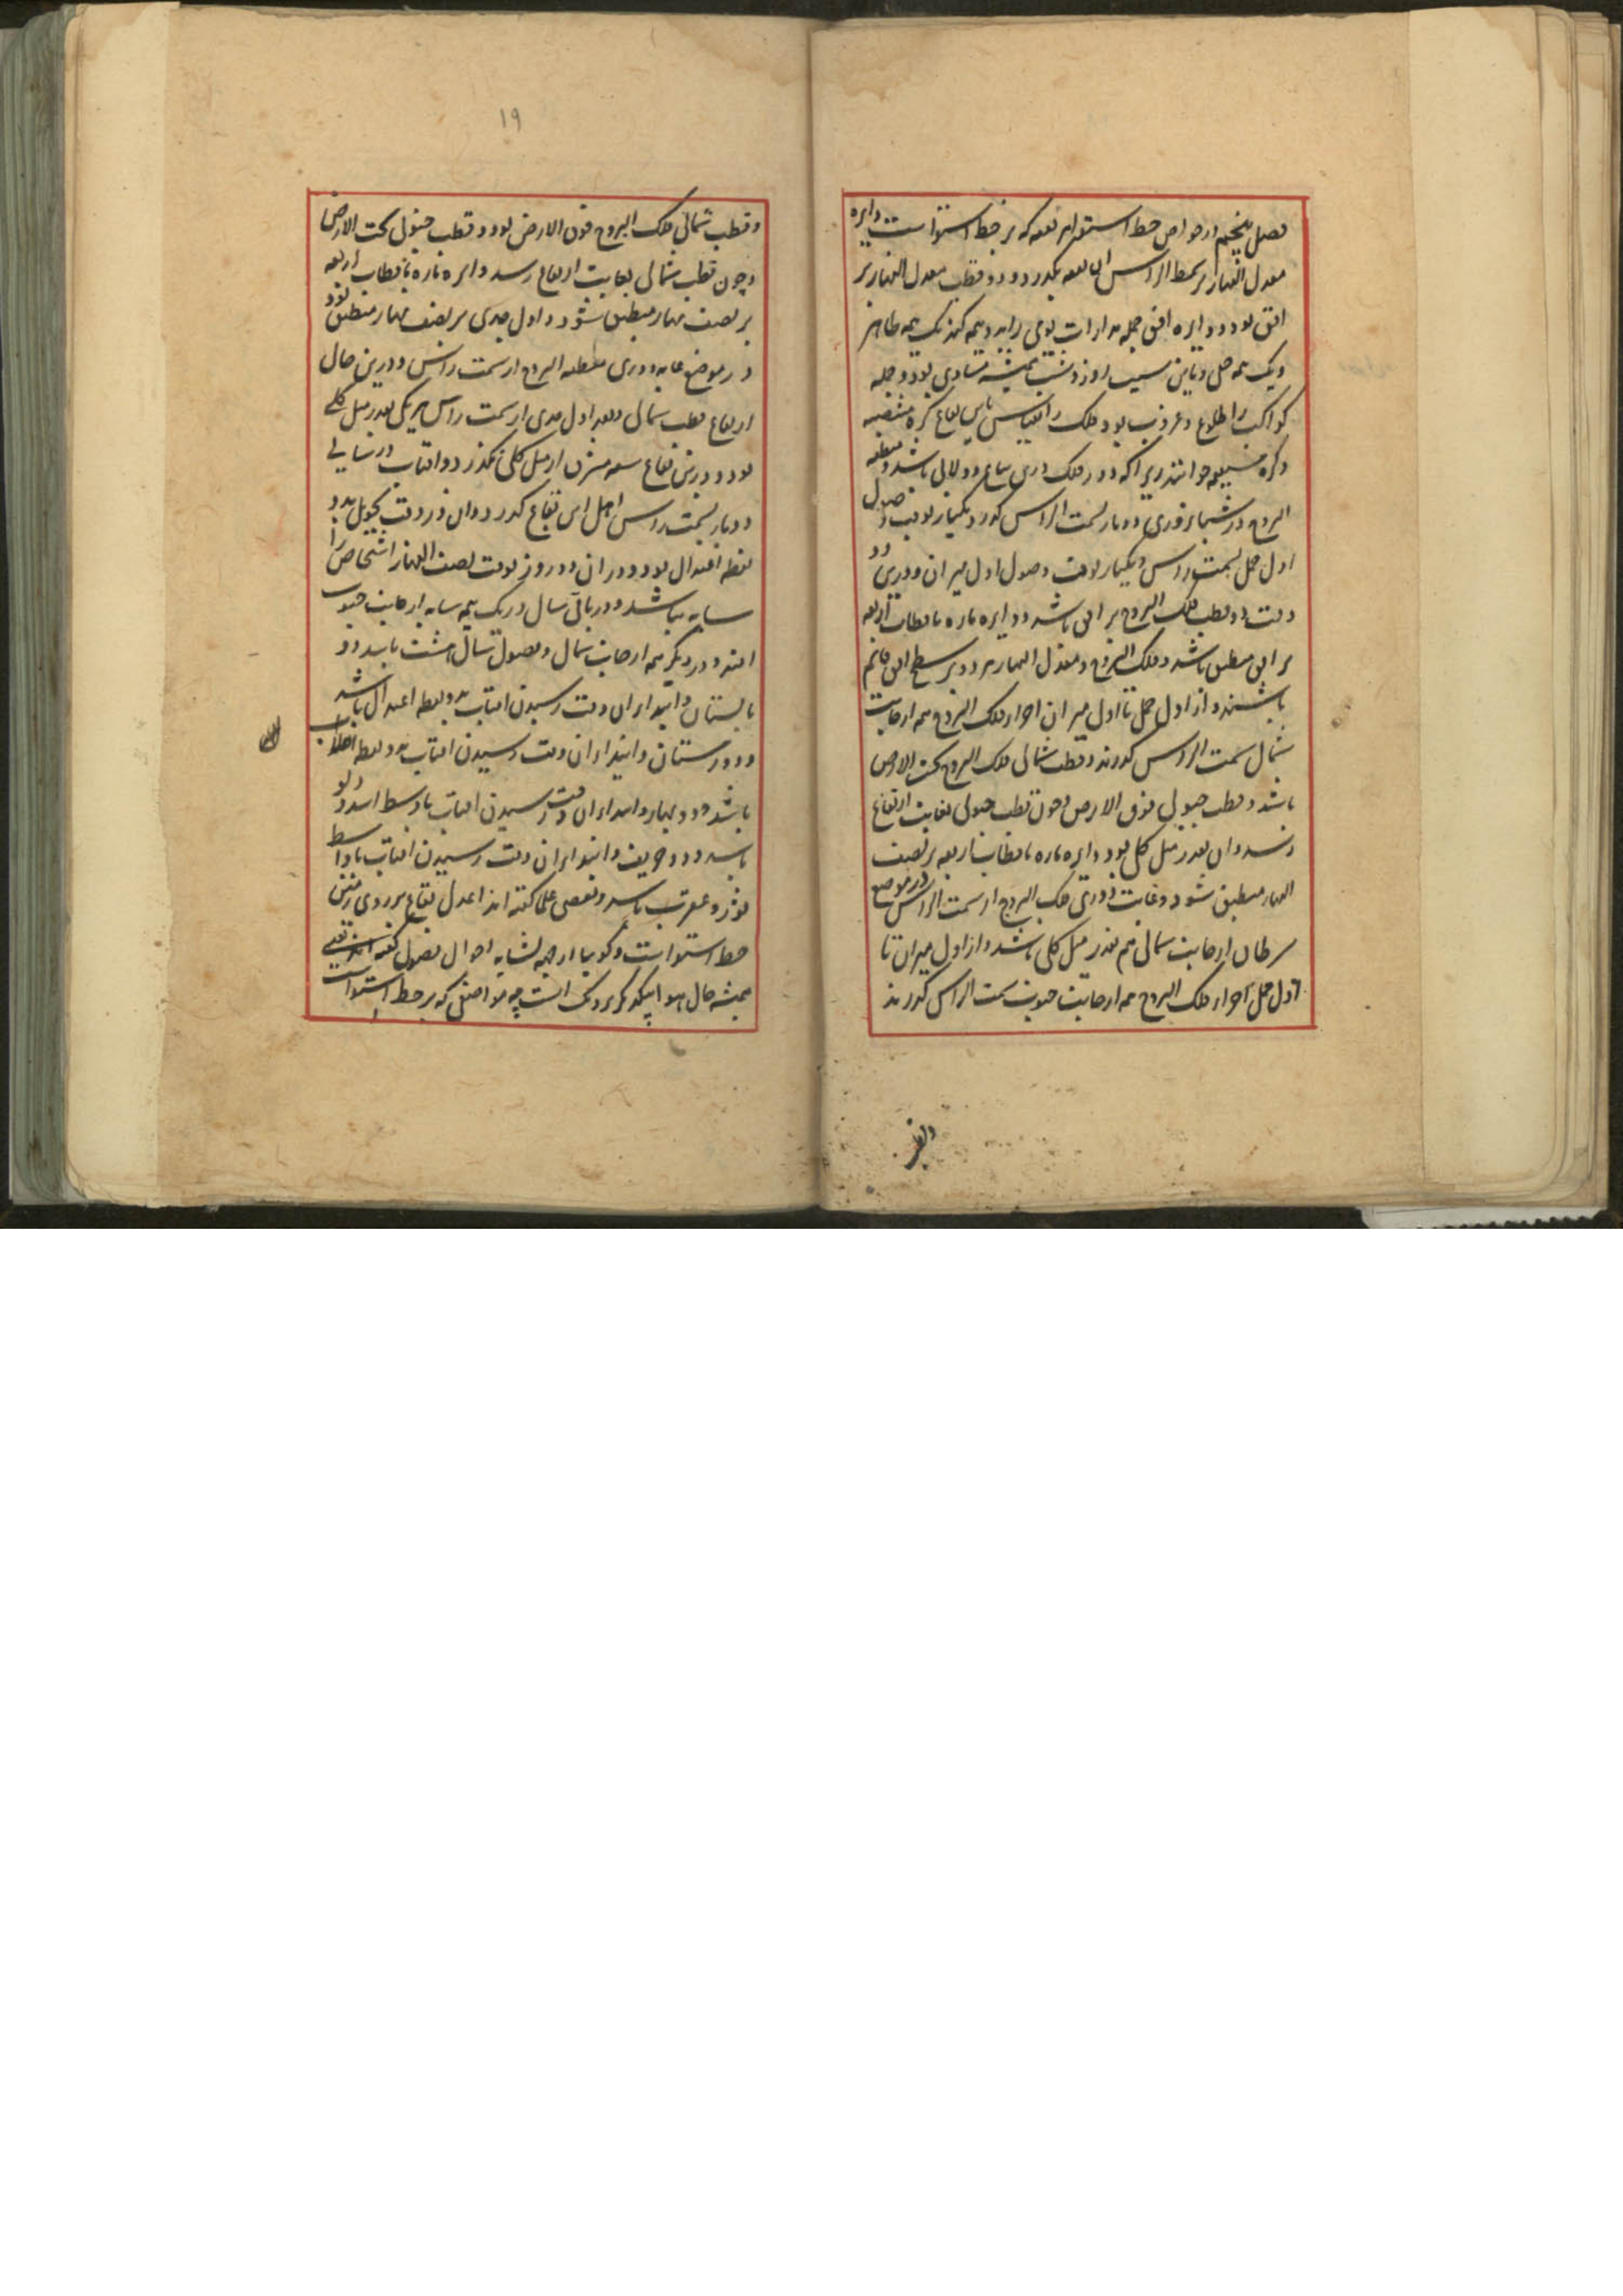 فصل پنجم در خواص خط استوا هر بقعه که بر خط استواست دایره
معدل النهار بر سمط الراس ان بقعه بگذرد و دو قطب معدل النهار بر
افق بود و دایره افق جمله مدارات یومی را بدو نیمه کند یک نیمه ظاهر
و یک نیمه خفی و باین سبب روز و شب همیشه متساوی بود و جمله
کواکب را طلوع و غروب بود و فلک را بقیاس باین بقاع کره منتصبه
و کره مستقیمه خوانند زیرا که دور فلک درین بقاع دولابی باشد و منطقه
البروج در شبانروزی دوبار بسمت الراس گذرد یکبار بوقت وصول
اول حمل بسمت راس و یکبار بوقت وصول اول میزان و درین دو
وقت دو قطب فلک البروج بر افق باشد و دایره ماره باقطاب اربعه
بر افق منطبق باشد و فلک البروج و معدل النهار هر دو بر سطح افق قائم
باشند و از اول حمل تا اول میزان اجزاء فلک البروج همه از جانب
شمال سمت الراس گذرند و قطب شمالی فلک البروج تحت الارض
باشد و قطب جنوبی فوق الارض و چون قطب جنوبی بغایت ارتفاع
رسد و ان بقدر میل کلی بود دایره ماره باقطاب اربعه بر نصف
النهار منطبق شود و غایت دوری فلک البروج از سمت الراس در موضع
سرطان از جانب شمالی هم بقدر میل کلی باشد و از اول میزان تا
اول حمل اجزاء فلک البروج همه از جانب جنوب سمت الراس گذرند
و قطب
۱۹
و قطب شمالی فلک البروج فوق الارض بود و قطب جنوبی تحت الارض
و چون قطب شمالی بغایت ارتفاع رسد دایره ماره باقطاب اربعه
بر نصف نهار منطبق شود و اول جدی بر نصف نهار منطبق بود
در موضع غایة دوری منطقه البروج از سمت راس و درین حال
ارتفاع قطب شمالی و بعد اول جدی از سمت راس هر یکی بقدر میل کلی
بود و درین بقاع سعه مشرق از میل کلی نگذرد و افتاب در سالی
دوبار بسمت راس اهل این بقاع گذرد و ان در وقت تحویل بدو
نقطه اعتدال بود و در ان دو روز بوقت نصف النهار اشخاص را
سایه نباشد و در باقی سال در یک نیمه سایه از جانب جنوب
افتد و در دیگر نیمه از جانب شمال و فصول سال هشت باشد دو
تابستان و ابتداء ان وقت رسیدن افتاب بدو نقطه اعتدال باشد
و دو زمستان و ابتداء ان وقت رسیدن افتاب بدو نقطه انقلاب
باشد و دو بهار و ابتداء ان وقت رسیدن افتاب باوسط اسد و دلو
باشد و دو خریف و ابتداء ان وقت رسیدن افتاب باواسط
ثور و عقرب باشد و بعضی علما گفته اند اعدل بقاع بر روی زمین
خط استواست و گویا از جهه تشابه احوال فصول گفته اند یعنی
همیشه حال هوا بیکدیگر نزدیک است چه مواضعی که بر خط استواست